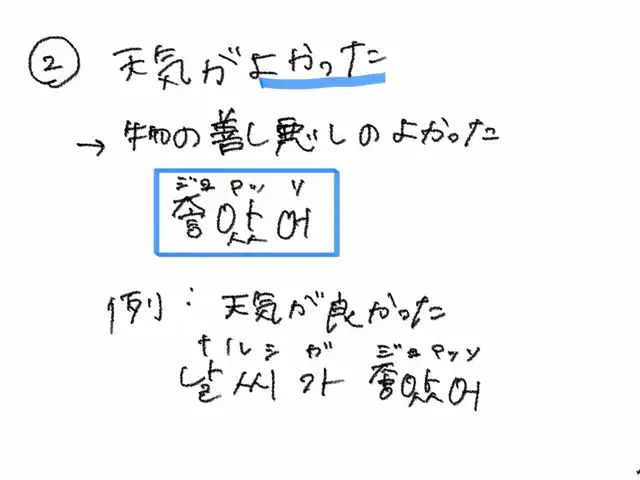 ② 天気がよかった
→ 物の善し悪しのよかった
ジョアッソ
좋았어
例：天気が良かった
ナルシガ ジョアッソ
날씨가 좋았어